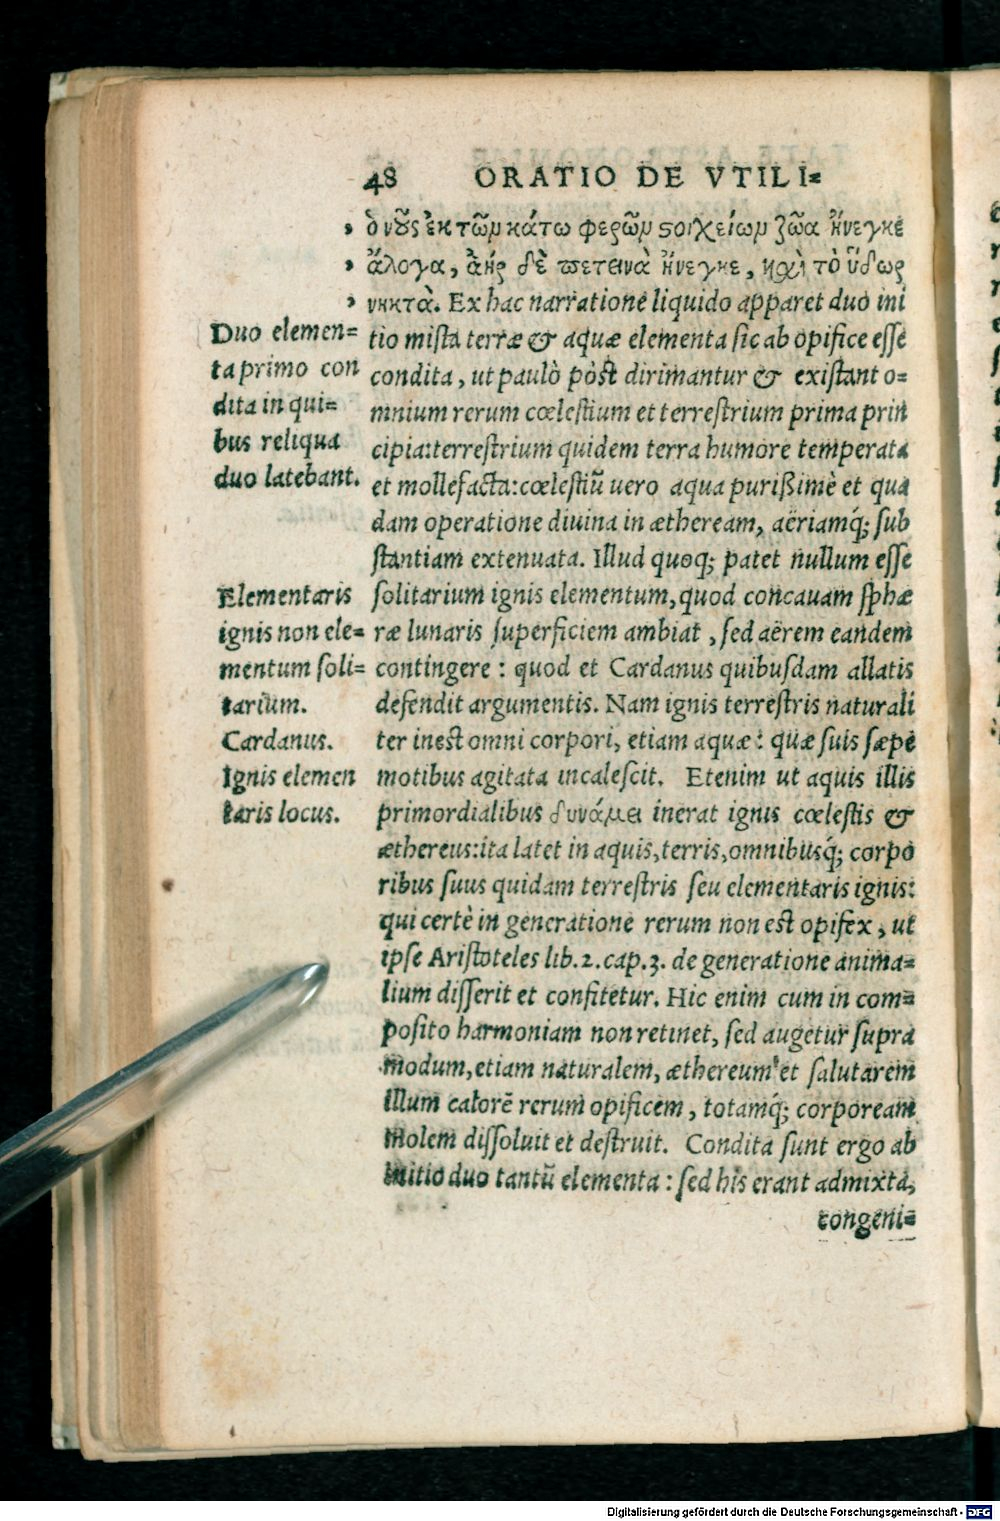 48 ORATIO DE VTILI=
ὁ νοῦς ἐκ τῶν κάτω φερῶν στοιχείων ζῶα ἤνεγκε
ἄλογα, ἀὴρ δὲ πετεινὰ ἤνεγκε, καὶ τὸ ὕδωρ
νηκτὰ. Ex hac narratione liquido apparet duo ini
tio mista terræ & aquæ elementa sic ab opifice esse
condita, ut paulò pòst dirimantur & existant o=
mnium rerum cœlestium et terrestrium prima prin
cipia: terrestrium quidem terra humore temperata
et mollefacta: cœlestiū uero aqua purißimè et qua
dam operatione diuina in ætheream, aëriamq́; sub
stantiam extenuata. Illud quoq; patet nullum esse
solitarium ignis elementum, quod concauam sphæ
ræ lunaris superficiem ambiat, sed aërem eandem
contingere: quod et Cardanus quibusdam allatis
defendit argumentis. Nam ignis terrestris naturali
ter inest omni corpori, etiam aquæ: quæ suis sæpe
motibus agitata incalescit. Etenim ut aquis illis
primordialibus δυνάμει inerat ignis cœlestis &
æthereus: ita latet in aquis, terris, omnibusq́; corpo
ribus suus quidam terrestris seu elementaris ignis:
qui certè in generatione rerum non est opifex, ut
ipse Aristoteles lib. 2. cap. 3. de generatione anima=
lium disserit et confitetur. Hic enim cum in com=
posito harmoniam non retinet, sed augetur supra
modum, etiam naturalem, æthereum et salutarem
illum calorē rerum opificem, totamq́; corpoream
molem dissoluit et destruit. Condita sunt ergo ab
initio duo tantū elementa: sed his erant admixta,
congeni=
Duo elemen=
ta primo con
dita in qui=
bus reliqua
duo latebant.
Elementaris
ignis non ele=
mentum soli=
tarium.
Cardanus.
Ignis elemen
taris locus.
Digitalisierung gefördert durch die Deutsche Forschungsgemeinschaft - DFG